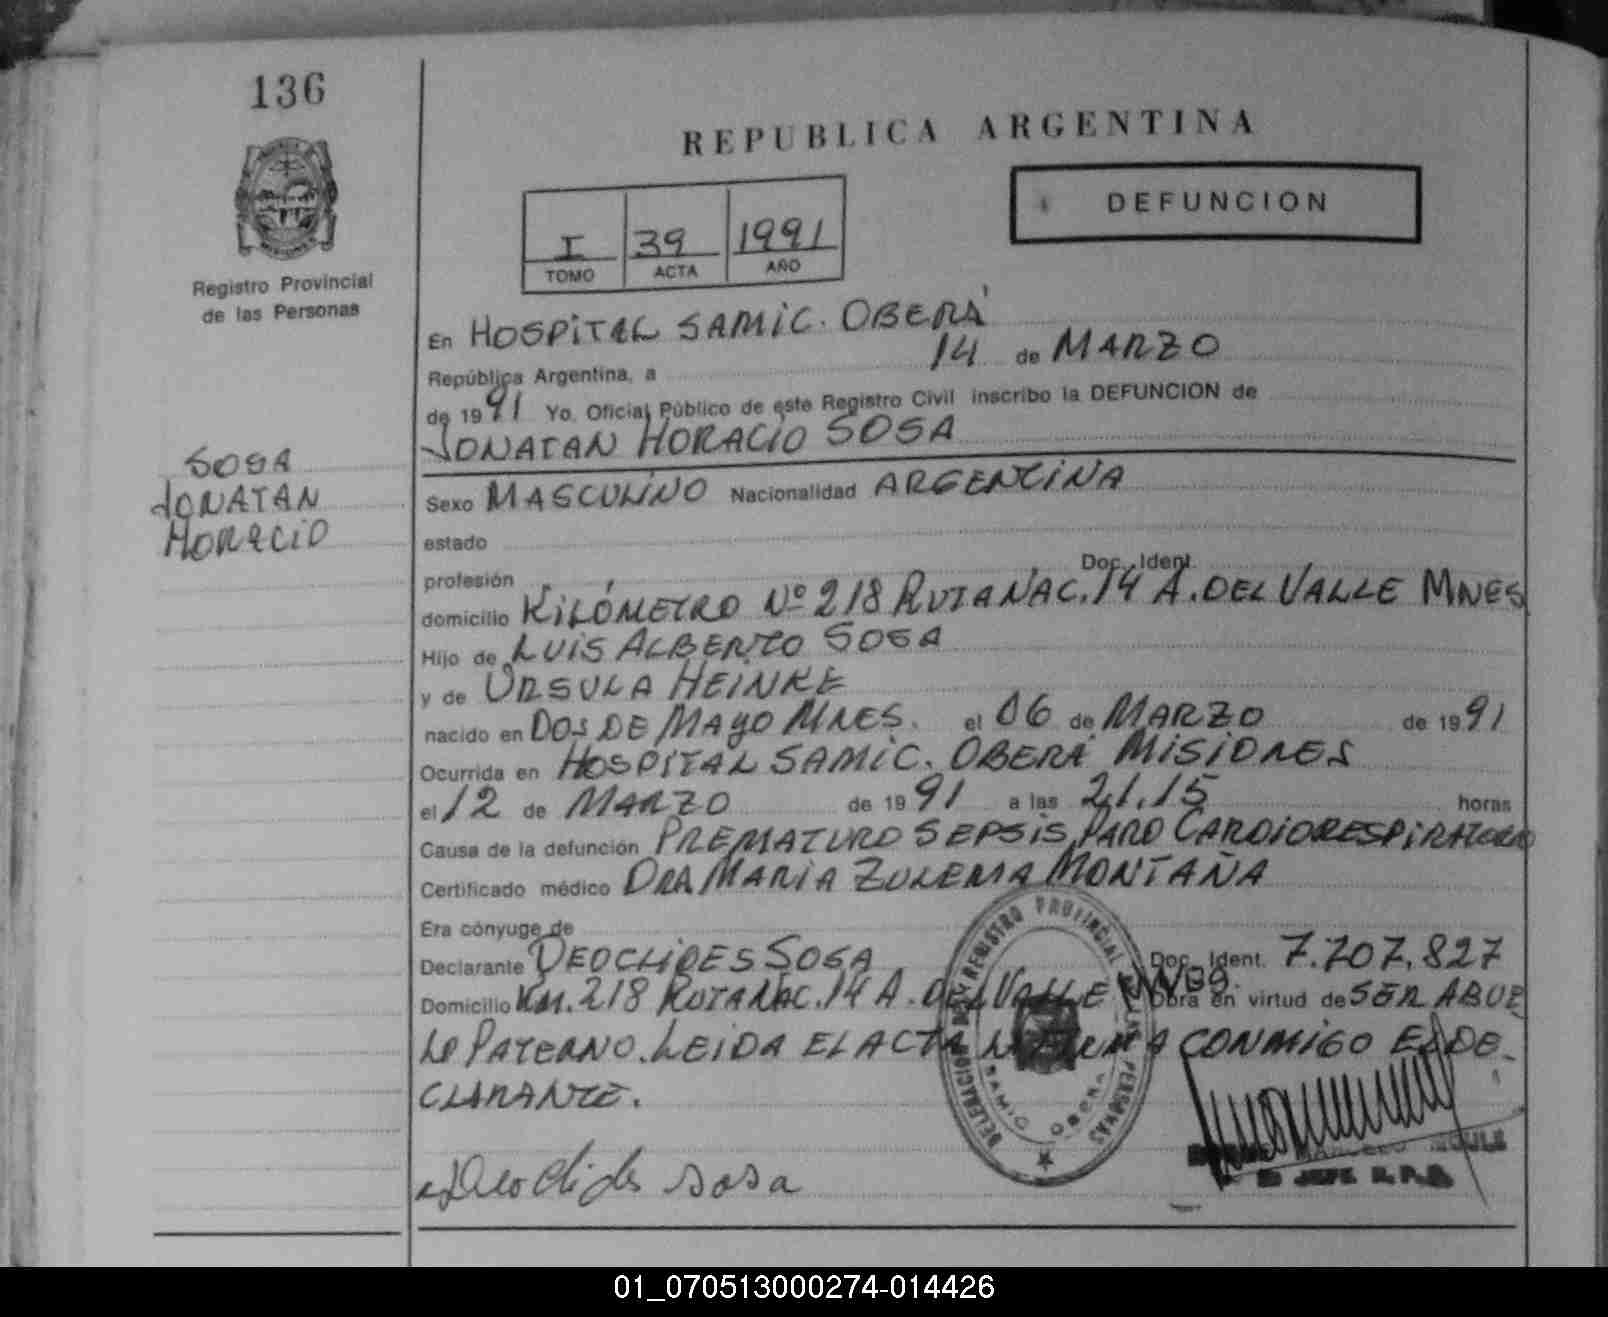 136
REPUBLICA ARGENTINA
DEFUNCION
I 39 1991
TOMO ACTA AÑO
Registro Provincial
de las Personas
En HOSPITAL SAMIC. OBERÁ
República Argentina, a 14 de MARZO
de 1991 Yo, Oficial Público de este Registro Civil inscribo la DEFUNCION de
JONATAN HORACIO SOSA
SOSA
JONATAN
HORACIO
Sexo MASCULINO Nacionalidad ARGENTINA
estado
profesión Doc. Ident.
domicilio KILÓMETRO Nº 218 RUTA NAC. 14 A. DEL VALLE MNES
Hijo de LUIS ALBERTO SOSA
y de URSULA HEINKE
nacido en DOS DE MAYO MNES. el 06 de MARZO de 1991
Ocurrida en HOSPITAL SAMIC. OBERÁ MISIONES
el 12 de MARZO de 1991 a las 21.15 horas
Causa de la defunción PREMATURO SEPSIS, PARO CARDIORESPIRATORIO
Certificado médico DRA MARIA ZULEMA MONTAÑA
Era cónyuge de
Declarante DEOCLIDES SOSA Doc. Ident. 7.707.827
Domicilio KM. 218 RUTA NAC. 14 A. DEL VALLE Obra en virtud de SER ABUE
LO PATERNO. LEIDA EL ACTA LA FIRMA CONMIGO EL DE-
CLARANTE.
DELEGACION REGISTRO PROVINCIAL DE LAS PERSONAS
SAMIC OBERA
Deoclides Sosa
MARCELO
JEFE R.P.
01_070513000274-014426